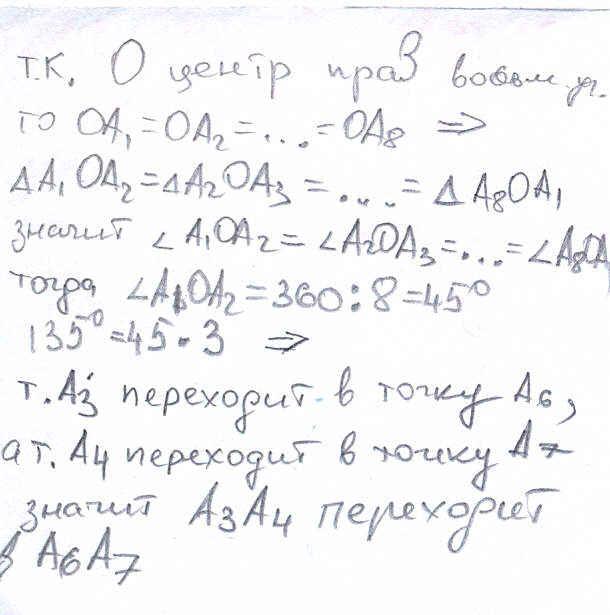 т.к. О центр прав восьм.уг.
то OA₁=OA₂=...=OA₈ ⇒
ΔA₁OA₂=ΔA₂OA₃=....=ΔA₈OA₁
значит ∠A₁OA₂=∠A₂OA₃=...=∠A₈OA₁
тогда ∠A₁OA₂=360:8=45⁰
135⁰=45·3 ⇒
т.A₃ переходит в точку A₆,
а т. A₄ переходит в точку A₇
значит A₃A₄ переходит
в A₆A₇